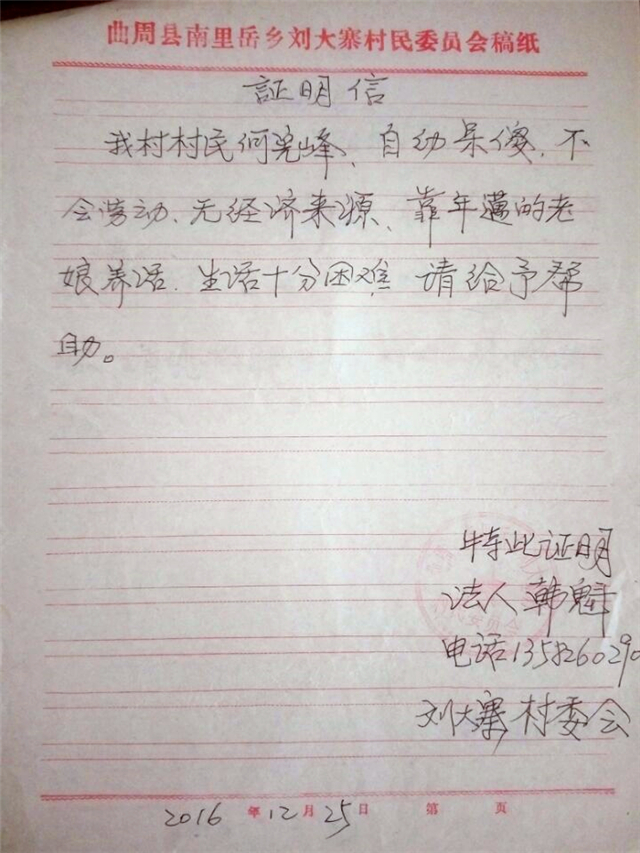 曲周县南里岳乡刘大寨村民委员会稿纸
証明信
我村村民何晃峰、自幼呆傻、不
会劳动、无经济来源、靠年邁的老
娘养活、生活十分困难 请给予帮
助。
特此证明
法人 韩魁
电话1358260290
刘大寨村委会
2016年12月25日 第 页